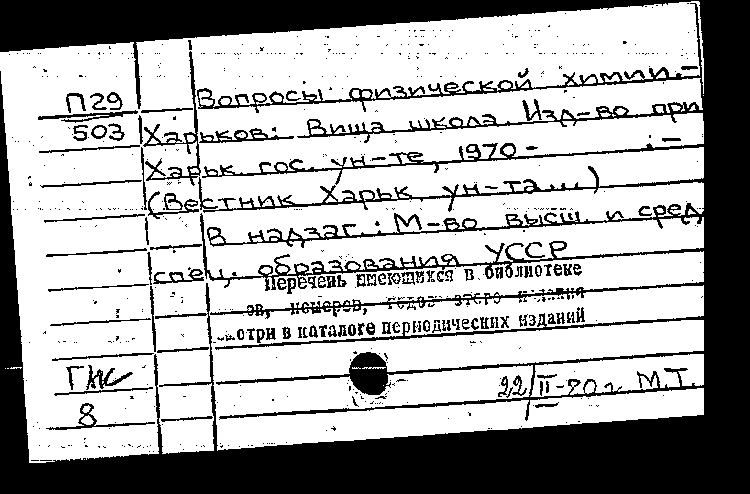 П29
503
Вопросы физической химии.-
Харьков: Вища школа. Изд-во при
Харьк. гос. ун-те, 1970- .-
(Вестник Харьк. ун-та...)
В надзаг.: М-во высш. и сред.
спец. образования УССР
Перечень имеющихся в библиотеке
ов, номеров, годов этого издания
отри в каталоге периодических изданий
8
22/II-80г. М.Т.